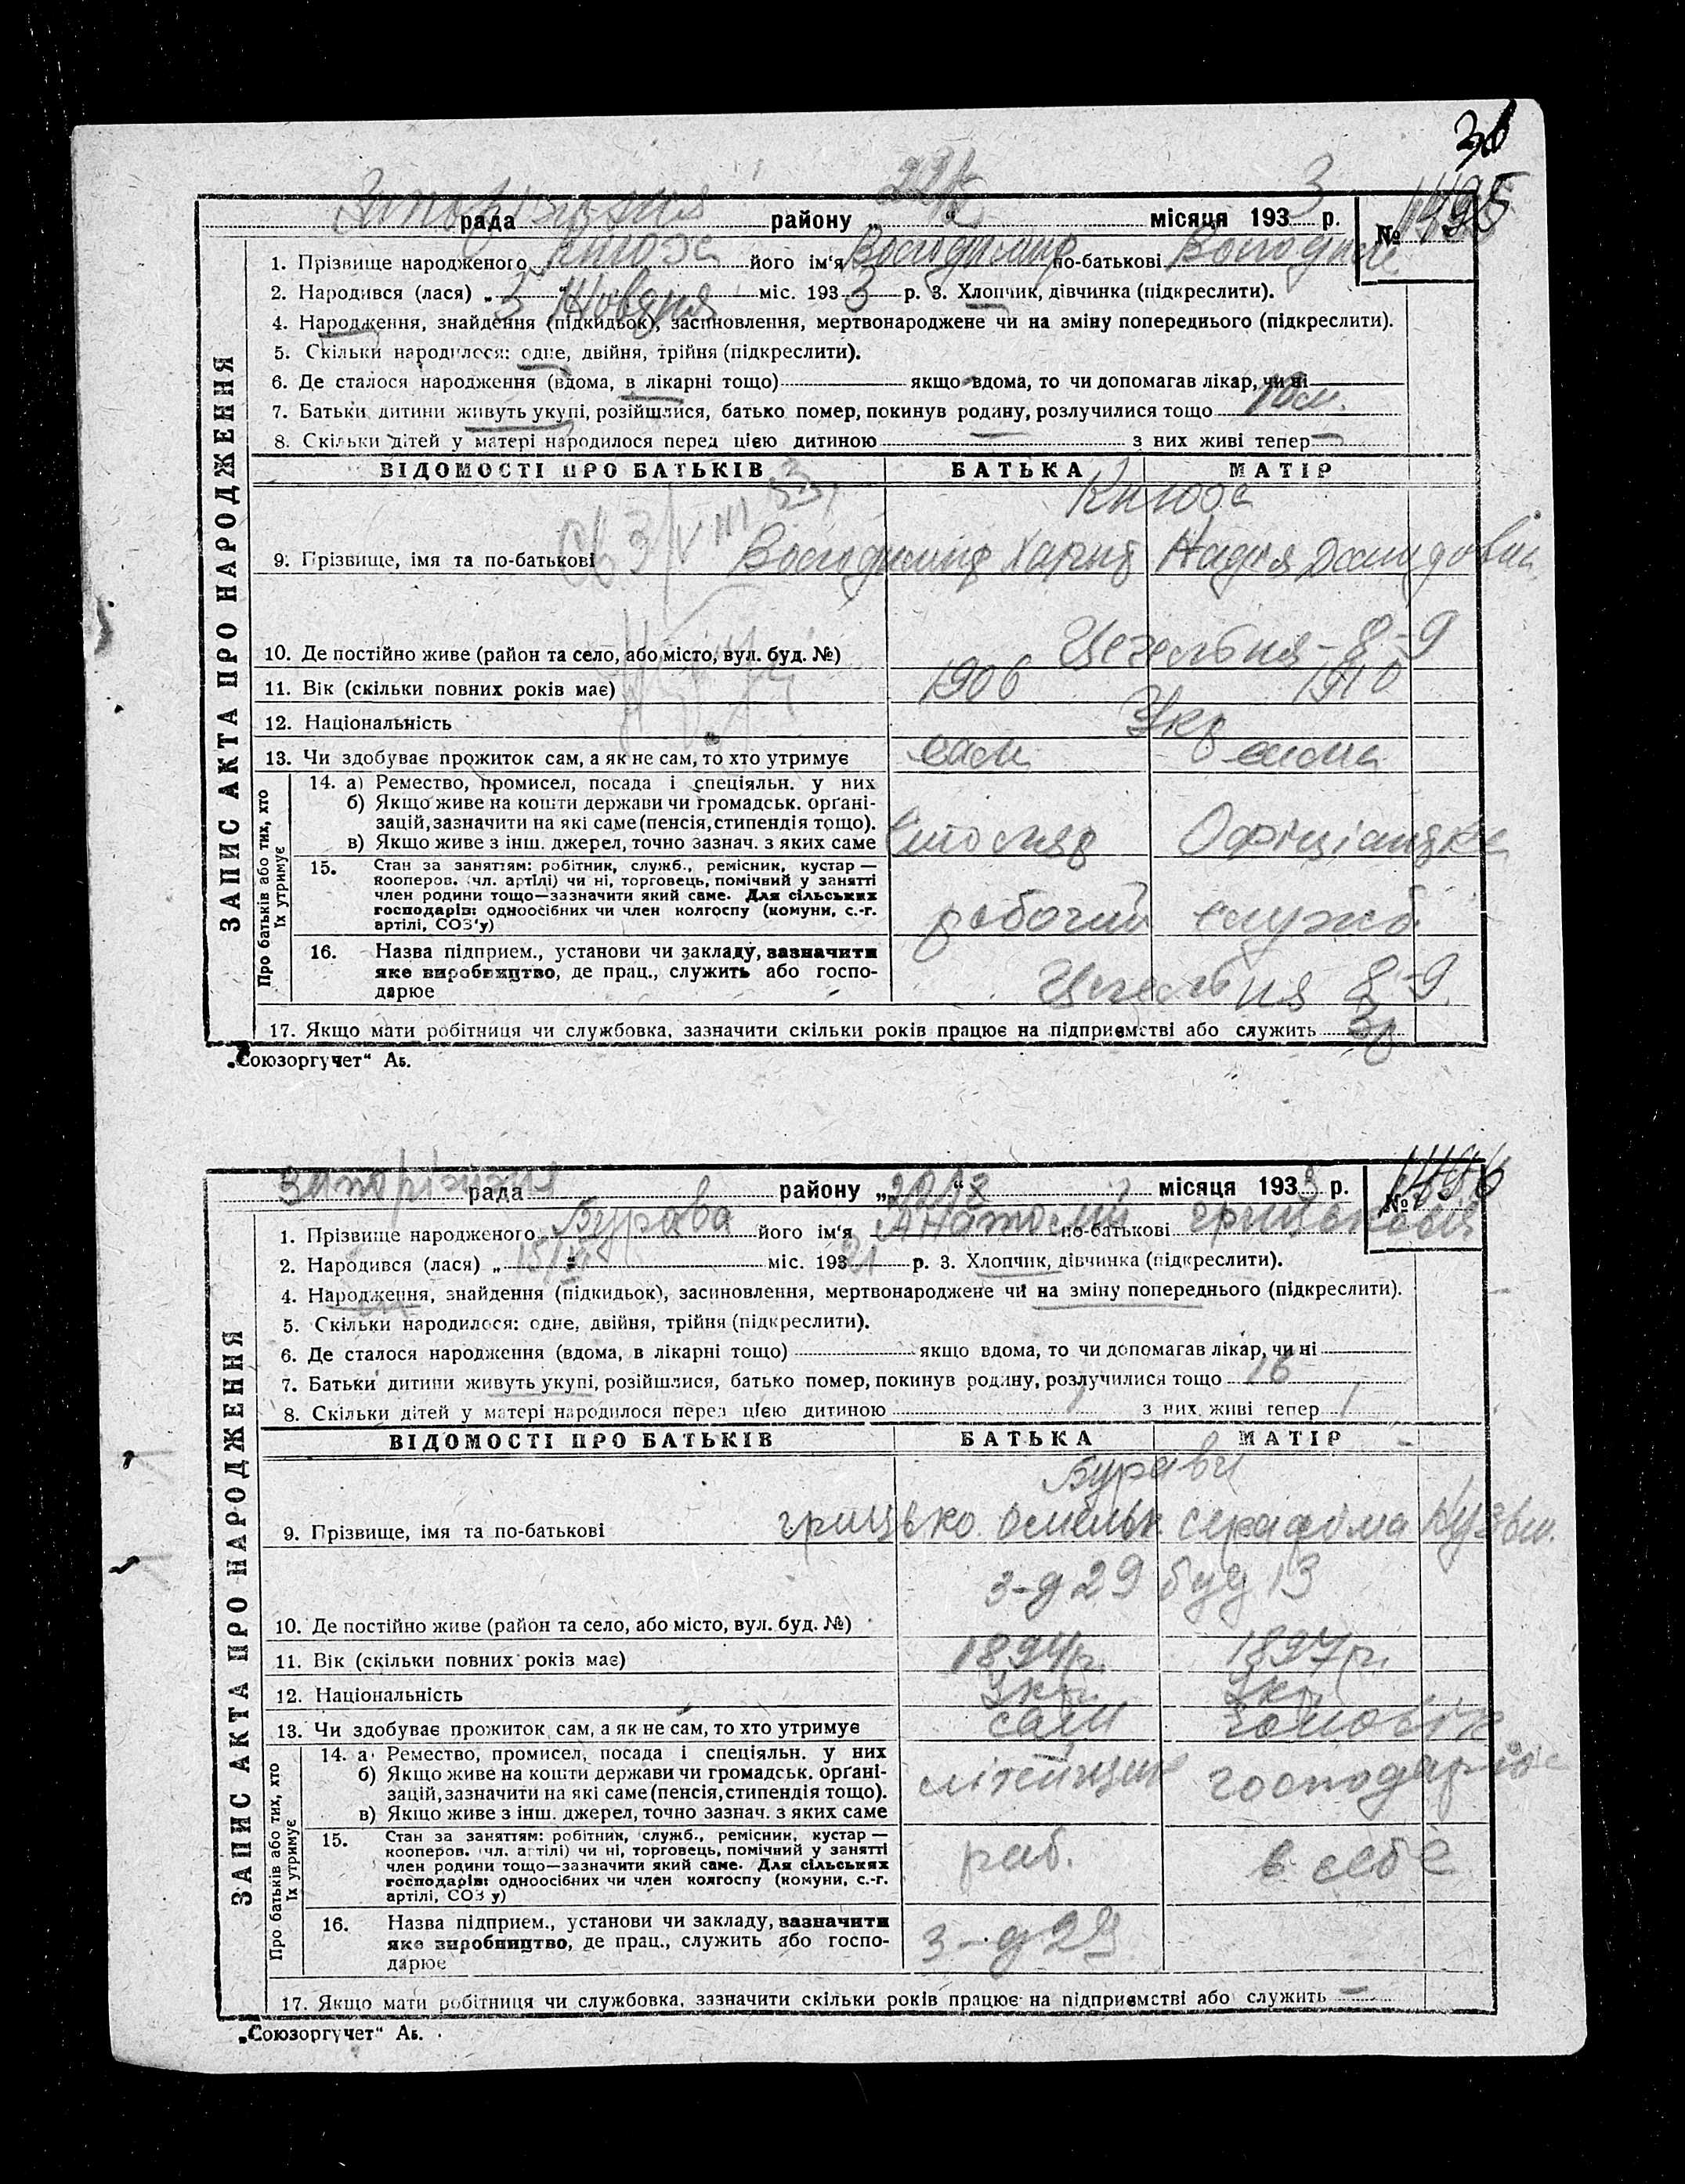 30
Запорізька рада району „22/X“ місяця 1933 р. № 1495
1. Прізвище народженого Кнюх його ім‘я Володимир по-батькові Володим
2. Народився (лася) „5“ Жовтня міс. 1933 р. 3. Хлопчик, дівчинка (підкреслити).
4. Народження, знайдення (підкидьок), засиновлення, мертвонароджене чи на зміну попереднього (підкреслити).
5. Скільки народилося: одне, двійня, трійня (підкреслити).
6. Де сталося народження (вдома, в лікарні тощо) якщо вдома, то чи допомагав лікар, чи ні
7. Батьки дитини живуть укупі, розійшлися, батько помер, покинув родину, розлучилися тощо
8. Скільки дітей у матері народилося перед цією дитиною — з них живі тепер —
ЗАПИС АКТА ПРО НАРОДЖЕННЯ
ВІДОМОСТІ ПРО БАТЬКІВ БАТЬКА МАТІР
9. Прізвище, імя та по-батькові Володимир Харит Надія
10. Де постійно живе (район та село, або місто, вул. буд. №) Цегельня - 8-9
11. Вік (скільки повних років має) 1906 1910
12. Національність Укр
13. Чи здобуває прожиток сам, а як не сам, то хто утримує сам сама
Про батьків або тих, хто їх утримує
14. а) Ремество, промисел, посада і спеціяльн. у них
б) Якщо живе на кошти держави чи громадськ. орґані-
зацій, зазначити на які саме (пенсія, стипендія тощо).
в) Якщо живе з інш. джерел, точно зазнач. з яких саме столяр Офіціантка
15. Стан за заняттям: робітник, служб., ремісник, кустар —
кооперов. (чл. артілі) чи ні, торговець, помічний у занятті
член родини тощо—зазначити який саме. Для сільських
господарів: одноосібних чи член колгоспу (комуни, с.-г.
артілі, СОЗ‘у) робочий служб
16. Назва підприєм., установи чи закладу, зазначити
яке виробництво, де прац., служить або госпо-
дарює Цегельня 8-9
17. Якщо мати робітниця чи службовка, зазначити скільки років працює на підприємстві або служить 3р
„Союзоргучет“ Аб.
Запорізька рада району „20/X“ місяця 1933 р. № 1496
1. Прізвище народженого Бурава його ім‘я Анатолій по-батькові Грицькович
2. Народився (лася) „15/VI“ міс. 1931 р. 3. Хлопчик, дівчинка (підкреслити).
4. Народження, знайдення (підкидьок), засиновлення, мертвонароджене чи на зміну попереднього (підкреслити).
5. Скільки народилося: одне, двійня, трійня (підкреслити).
6. Де сталося народження (вдома, в лікарні тощо) якщо вдома, то чи допомагав лікар, чи ні
7. Батьки дитини живуть укупі, розійшлися, батько помер, покинув родину, розлучилися тощо 16
8. Скільки дітей у матері народилося перед цією дитиною 1 з них живі тепер 1
ЗАПИС АКТА ПРО НАРОДЖЕННЯ
ВІДОМОСТІ ПРО БАТЬКІВ БАТЬКА МАТІР
Бурави
9. Прізвище, імя та по-батькові Грицько Омельк. Серафима Кузьм.
з-д 29 буд 13
10. Де постійно живе (район та село, або місто, вул. буд. №)
11. Вік (скільки повних років має) 1894р. 1897р.
12. Національність Укр. Укр.
13. Чи здобуває прожиток сам, а як не сам, то хто утримує сам чоловік
Про батьків або тих, хто їх утримує
14. а) Ремество, промисел, посада і спеціяльн. у них
б) Якщо живе на кошти держави чи громадськ. орґані-
зацій, зазначити на які саме (пенсія, стипендія тощо).
в) Якщо живе з інш. джерел, точно зазнач. з яких саме літейщик господарює
15. Стан за заняттям: робітник, служб., ремісник, кустар —
кооперов. (чл. артілі) чи ні, торговець, помічний у занятті
член родини тощо—зазначити який саме. Для сільських
господарів: одноосібних чи член колгоспу (комуни, с.-г.
артілі, СОЗ‘у) раб. в себе
16. Назва підприєм., установи чи закладу, зазначити
яке виробництво, де прац., служить або госпо-
дарює з-д 29
17. Якщо мати робітниця чи службовка, зазначити скільки років працює на підприємстві або служить —
„Союзоргучет“ Аб.